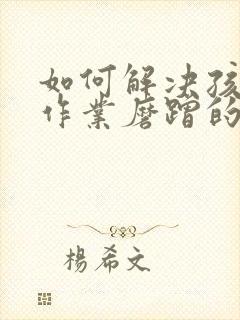 如何解决孩
作业磨蹭的
楊希文